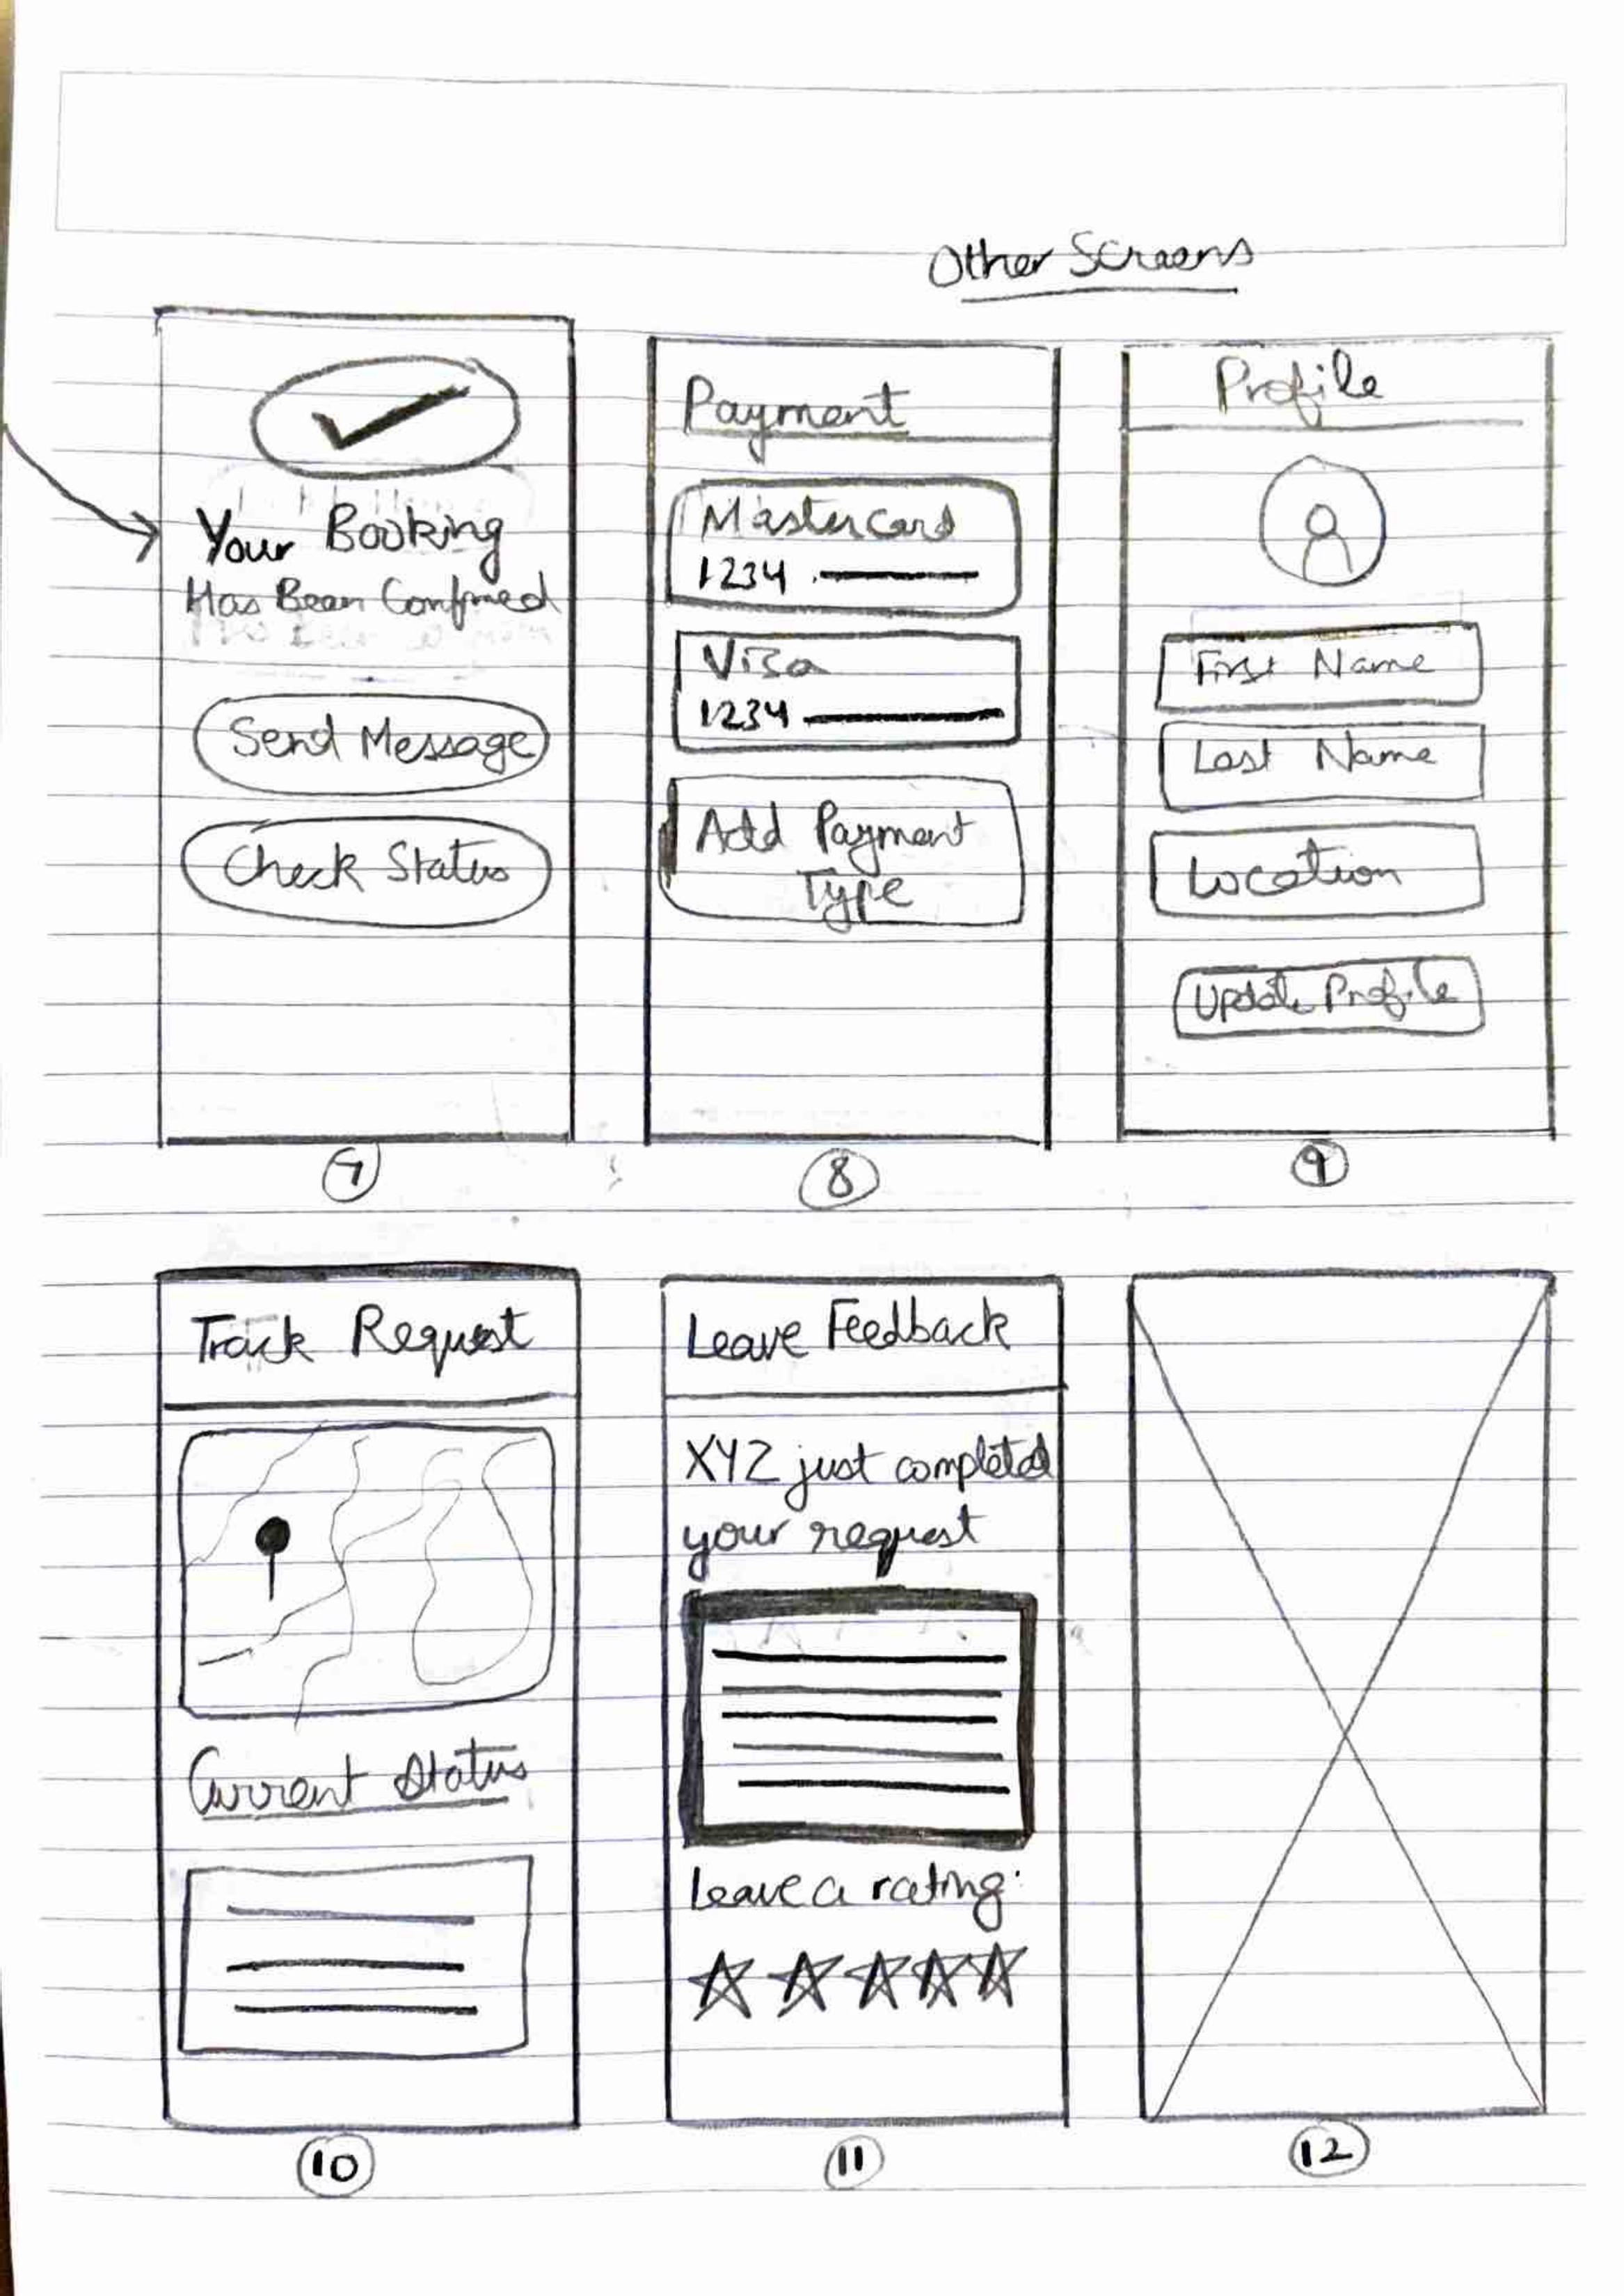 Other Screens
Your Booking
Has Been Confirmed
Send Message
Check Status
7
Payment
Mastercard
1234
Visa
1234
Add Payment
Type
8
Profile
First Name
Last Name
Location
Update Profile
9
Track Request
Current Status
10
Leave Feedback
XYZ just completed
your request
Leave a rating:
11
12